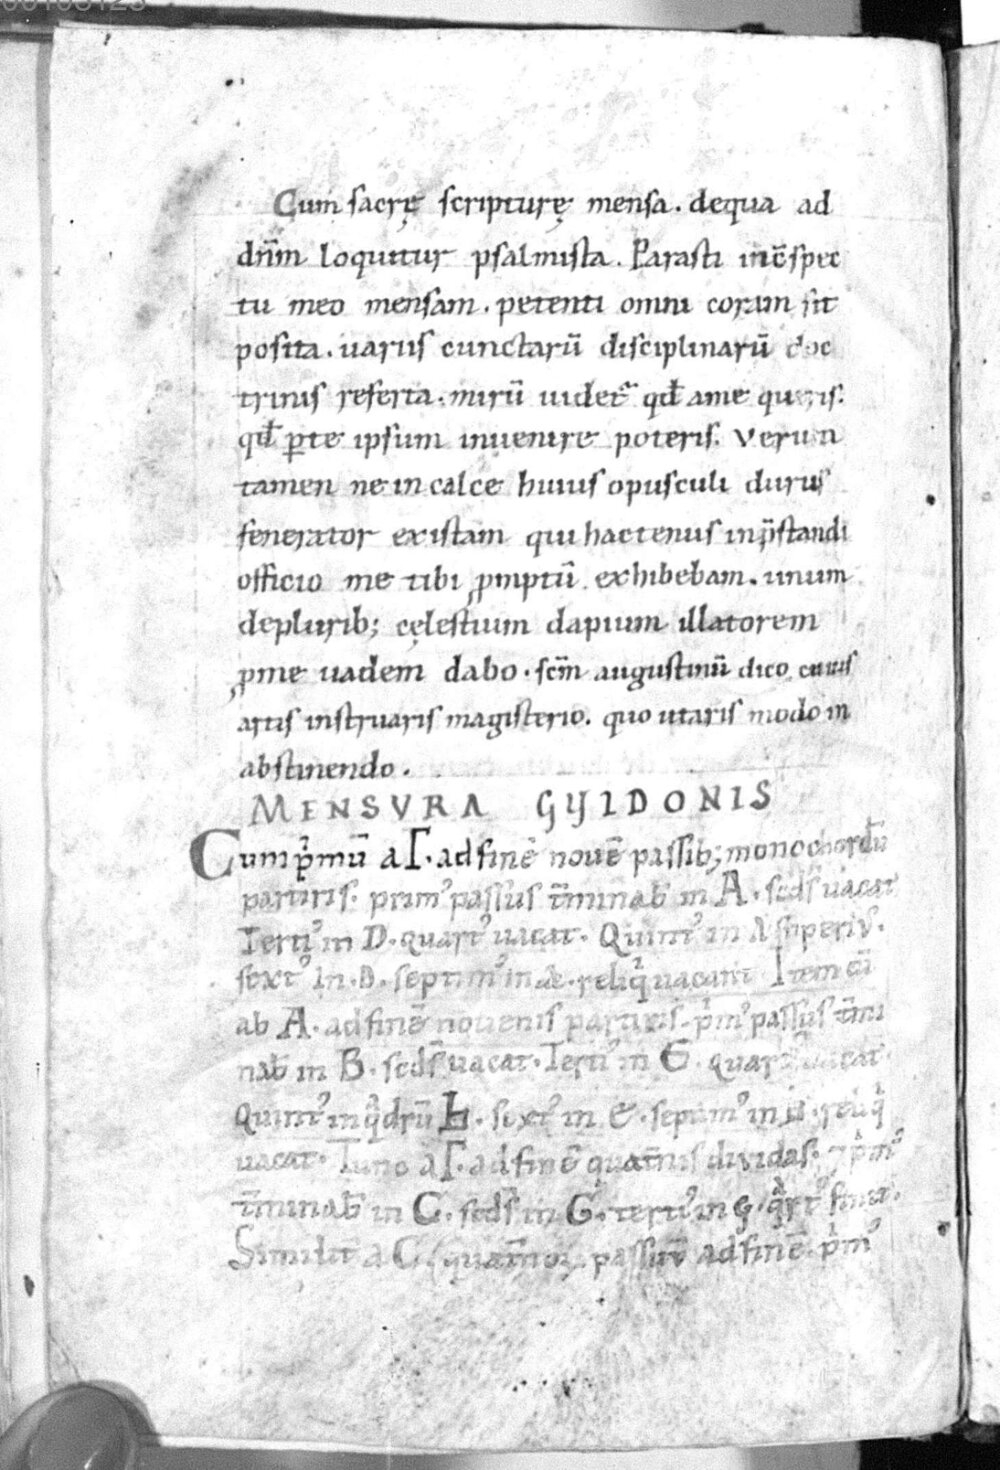 Cum sacrę scripturę mensa. dequa ad
dn̄m loquitur psalmista. Parasti inc̄spec
tu meo mensam. petenti omni coram sit
posita. uariis cunctarū disciplinarū doc
trinis referta. mirū uidet᷑ qđ ame queris.
qđ ꝑte ipsum inuenire poteris. Verun
tamen ne in calce huius opusculi durus
fenerator existam qui hactenus inp̄standi
officio me tibi ꝓmptū exhibebam. unum
deplurib; cęlestium dapium illatorem
ꝓme uadem dabo. sc̄m augustinū dico cuius
artis instruaris magisterio. quo utaris modo in
abstinendo.
MENSVRA GVIDONIS
Cum pͥmū a Γ. ad finē nouē passib; monochordū
partiris. primꝰ passus t̄minab᷑ in A. scdꝰ uacat
Tertiꝰ in D. quartꝰ uacat. Quintꝰ in a
sextꝰ in d. septimꝰ in reliqͥ uacant Item cū
ab A. ad finē nouenis partiris. pͥmꝰ passus t̄mi
nab᷑ in B. scdꝰ uacat. Tertiꝰ in E. quartꝰ uacat.
Quintꝰ in qͣdrū ♮. sextꝰ in e. septimꝰ in reliqͥ
uacat. a Γ. ad finē quat̄nis diuidas. ⁊ pͥmꝰ
t̄minab᷑ in C. scdꝰ in G. tertiꝰ in g. qͣrtꝰ finit.
Similit̄ a C. quat̄noꝝ passuū ad finē. pͥmꝰ